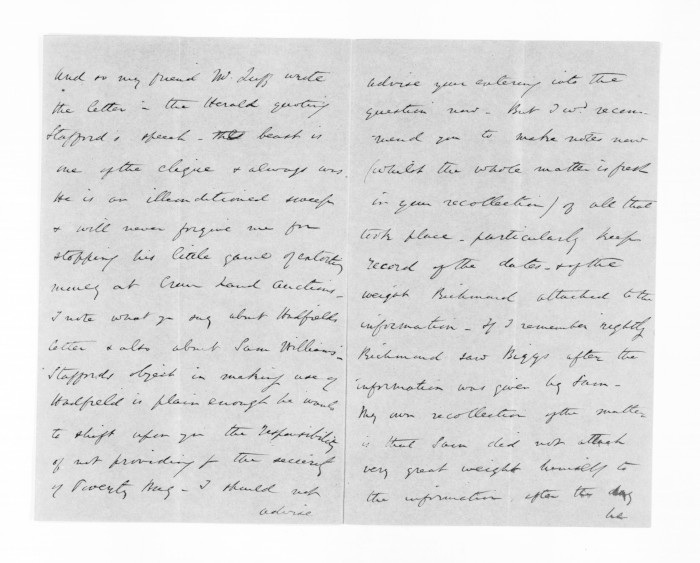 And so my friend Mr. Luff wrote
the letter - the Herald quoting
Stafford's speech - beast is
one of the clique & always was.
He is an illconditioned sweep
& will never forgive me for
stopping his little game of extorting
money at Crown Land Auctions -
I note what you say about Hadfield's
letter & also about Sam Williams -
Stafford's object in making use of
Hadfield is plain enough he wants
to shift upon you the responsibility
of not providing for the security
of Poverty Bay - I should not
advise
advise your entering into the
question now - But I wd. recom-
mend you to make notes now
(whilst the whole matter is fresh
in your recollection) of all that
took place - particularly keep
record of the dates - & of the
weight Richmond attached to the
information - If I remember rightly
Richmond saw Biggs after the
information was given by Sam -
My own recollection of the matter
is that Sam did not attach
very great weight himself to
the information after the day
he